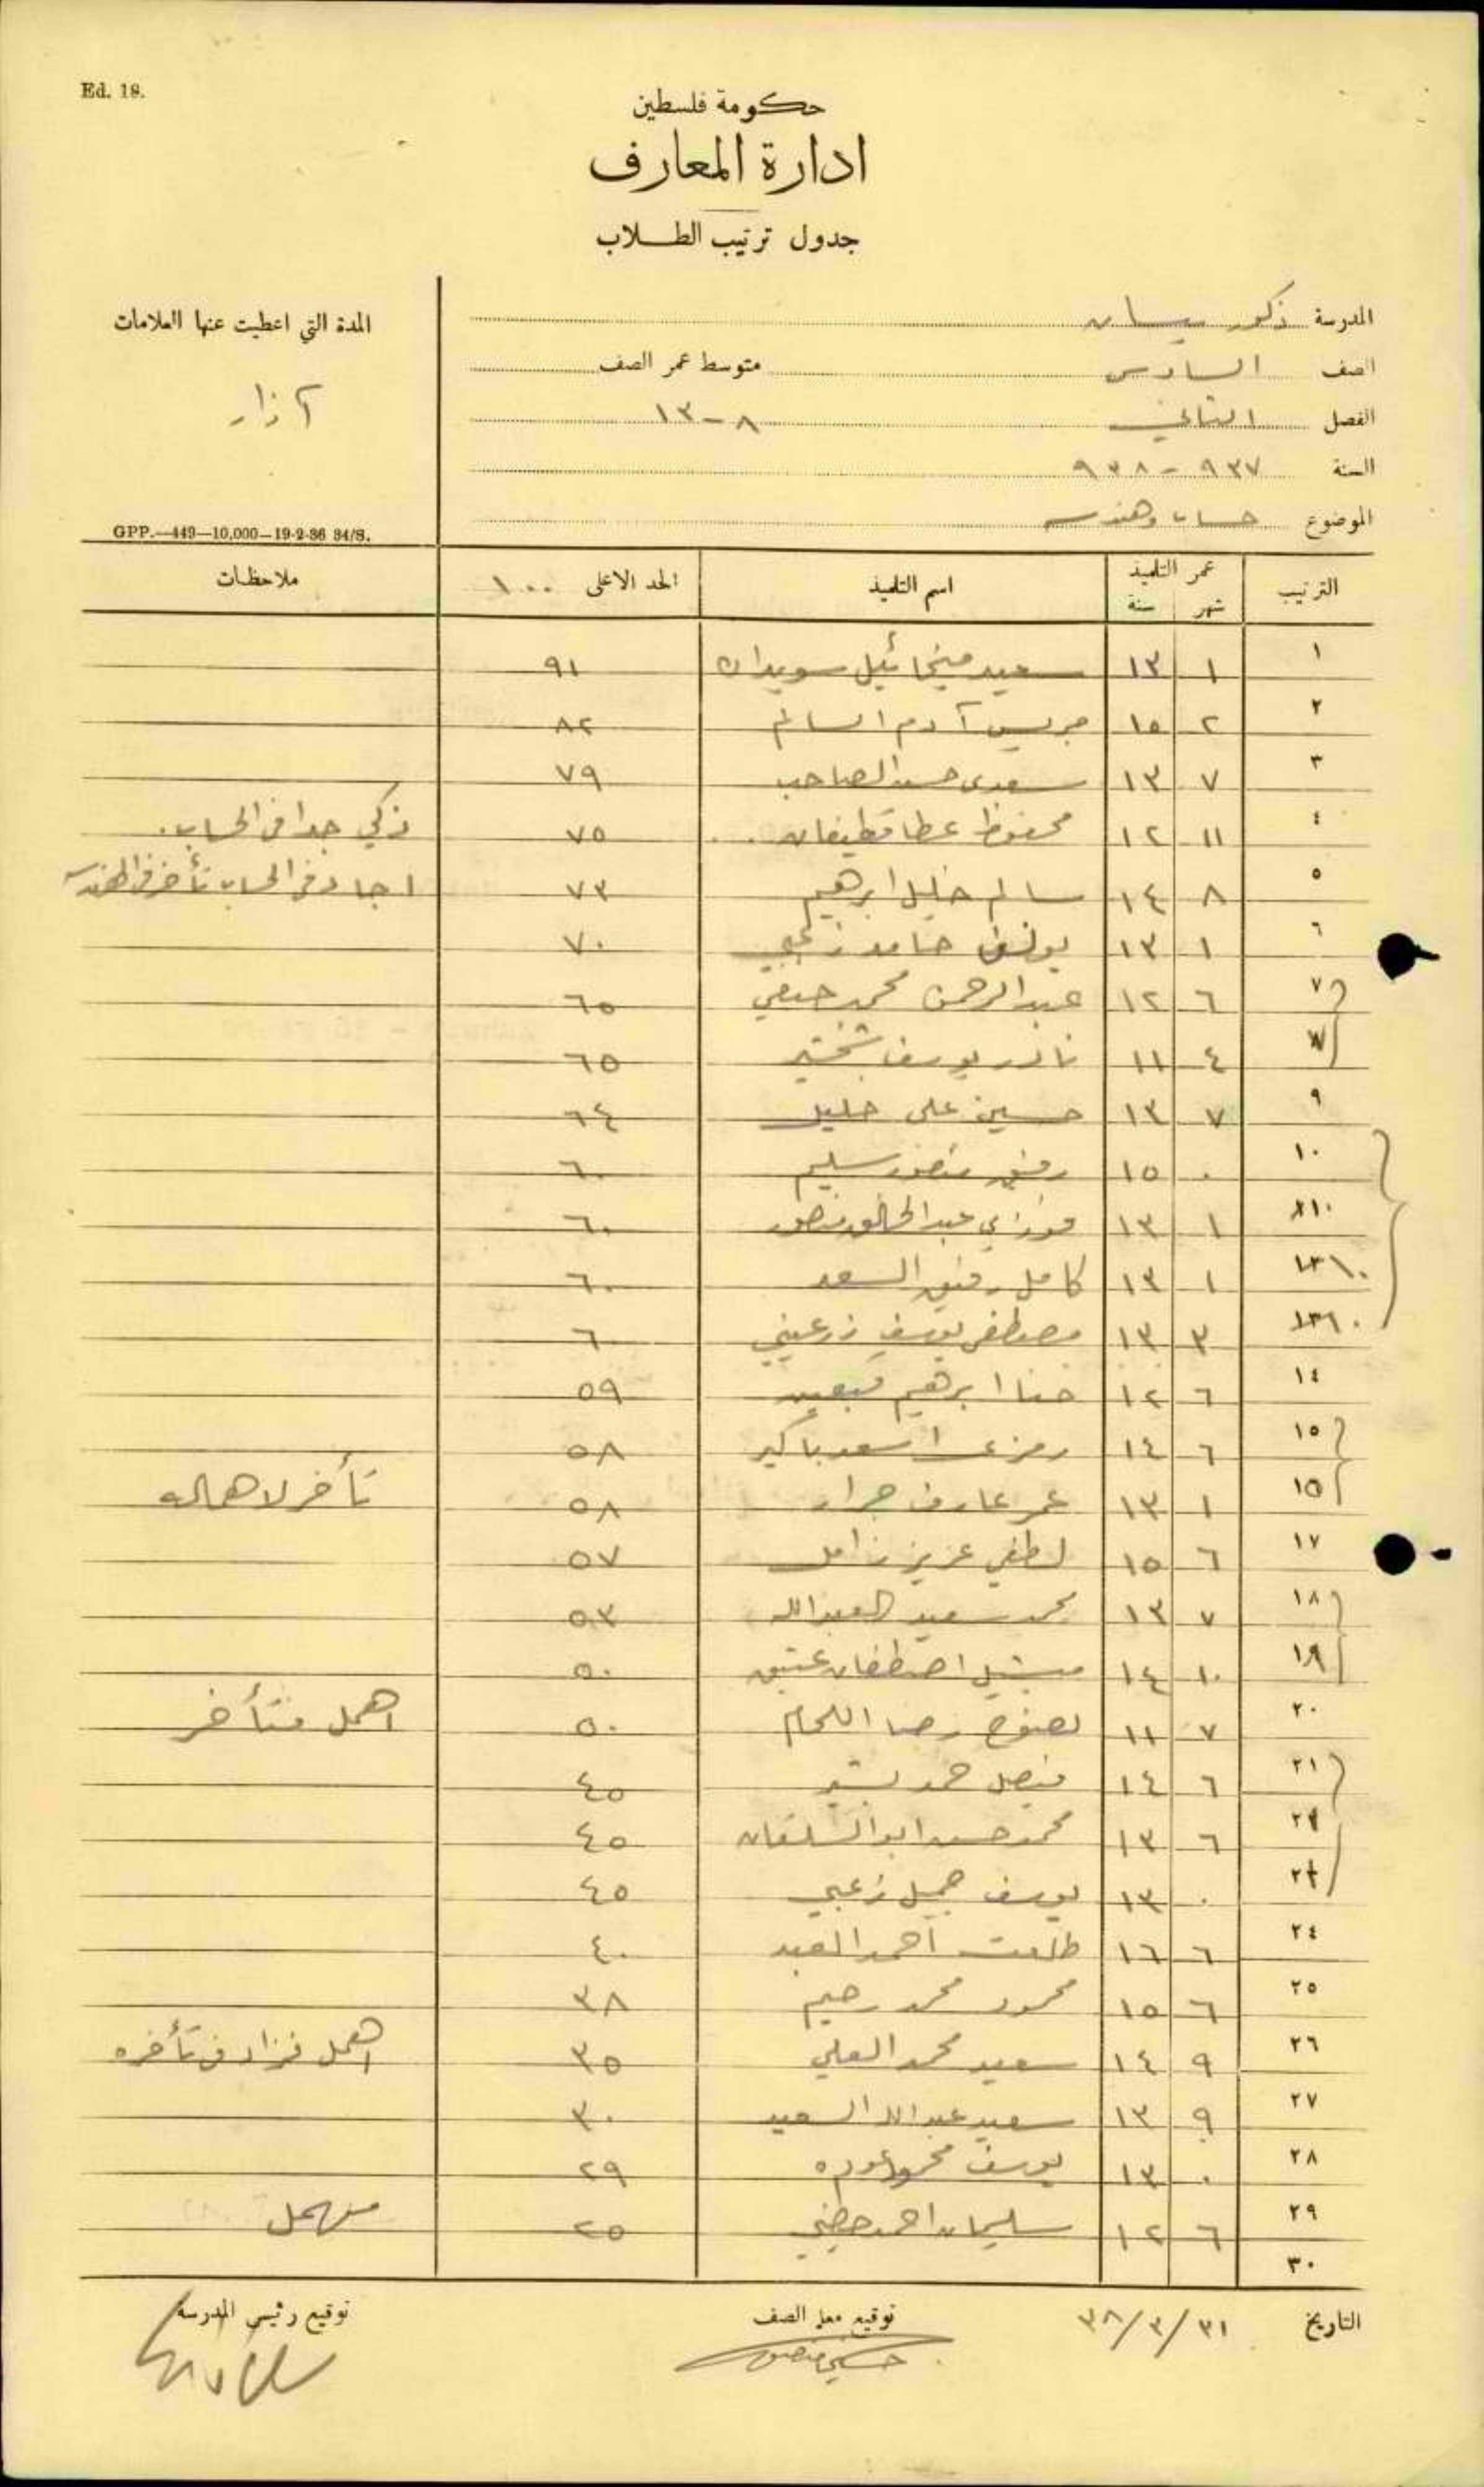 Ed. 18.
حكومة فلسطين
ادارة المعارف
جدول ترتيب الطلاب
المدرسة ذكور بيسان
المدة التي اعطيت عنها العلامات
الصف السادس متوسط عمر الصف
آذار
الفصل الثاني ٨-١٣
السنة ٩٣٧-٩٣٨
الموضوع حساب وهندسه
GPP.—449—10,000—19-2-36 34/S.
الترتيب عمر التلميذ اسم التلميذ الحد الاعلى ١٠٠ ملاحظات
شهر سنة
١ ١ ١٣ سعيد ميخائيل سويدان ٩١
٢ ٢ ١٥ جريس آدم السالم ٨٢
٣ ٧ ١٣ سعدى حسن الصاحب ٧٩
٤ ١١ ١٢ محفوظ عطا قطيفان ٧٥ ذكي جدا في الحساب.
٥ ٨ ١٤ سالم خليل ابرهيم ٧٣ اجاد في الحساب تأخر في الهندسه
٦ ١ ١٣ يوسف حامد زعبي ٧٠
٧ ٦ ١٢ عبد الرحمن محمد حنفي ٦٥
٧ ٤ ١١ نادر يوسف شخشير ٦٥
٩ ٧ ١٣ حسين علي خليل ٦٤
١٠ ٠ ١٥ رفيق منصور سليم ٦٠
١٠ ١ ١٣ فوزي عبد الخالق منصور ٦٠
١٠ ١ ١٣ كامل رفيق السعد ٦٠
١٠ ٣ ١٣ مصطفى يوسف زرعيني ٦٠
١٤ ٦ ١٢ حنا ابرهيم قبعين ٥٩
١٥ ٦ ١٤ رمزي اسعد باكير ٥٨
١٥ ١ ١٣ عمر عارف جرار ٥٨ تأخر لاهماله
١٧ ٦ ١٥ لطفي عزيز زامل ٥٧
١٨ ٧ ١٣ محمد سعيد العبدالله ٥٣
١٩ ١٠ ١٤ ميشيل اصطفان عتيق ٥٠
٢٠ ٧ ١١ نصوح رضا اللحام ٥٠ اهمل فتأخر
٢١ ٦ ١٤ فيصل حمد بشير ٤٥
٢١ ٦ ١٣ محمد حسن ابو ٤٥
٢١ ٠ ١٣ يوسف جميل زعبي ٤٥
٢٤ ٦ ١٦ طلعت احمد العبد ٤٠
٢٥ ٦ ١٥ محمود محمد رحيم ٣٨
٢٦ ٩ ١٤ سعيد محمد العلي ٣٥ اهمل فزاد في تأخره
٢٧ ٩ ١٣ سعيد عبدالله السعيد ٣٠
٢٨ ٠ ١٣ يوسف محمود عوده ٢٩
٢٩ ٦ ١٢ سليمان احمد ٢٥ مهمل
٣٠
التاريخ ٣١/٣/٣٨ توقيع معلم الصف توقيع رئيس المدرسة